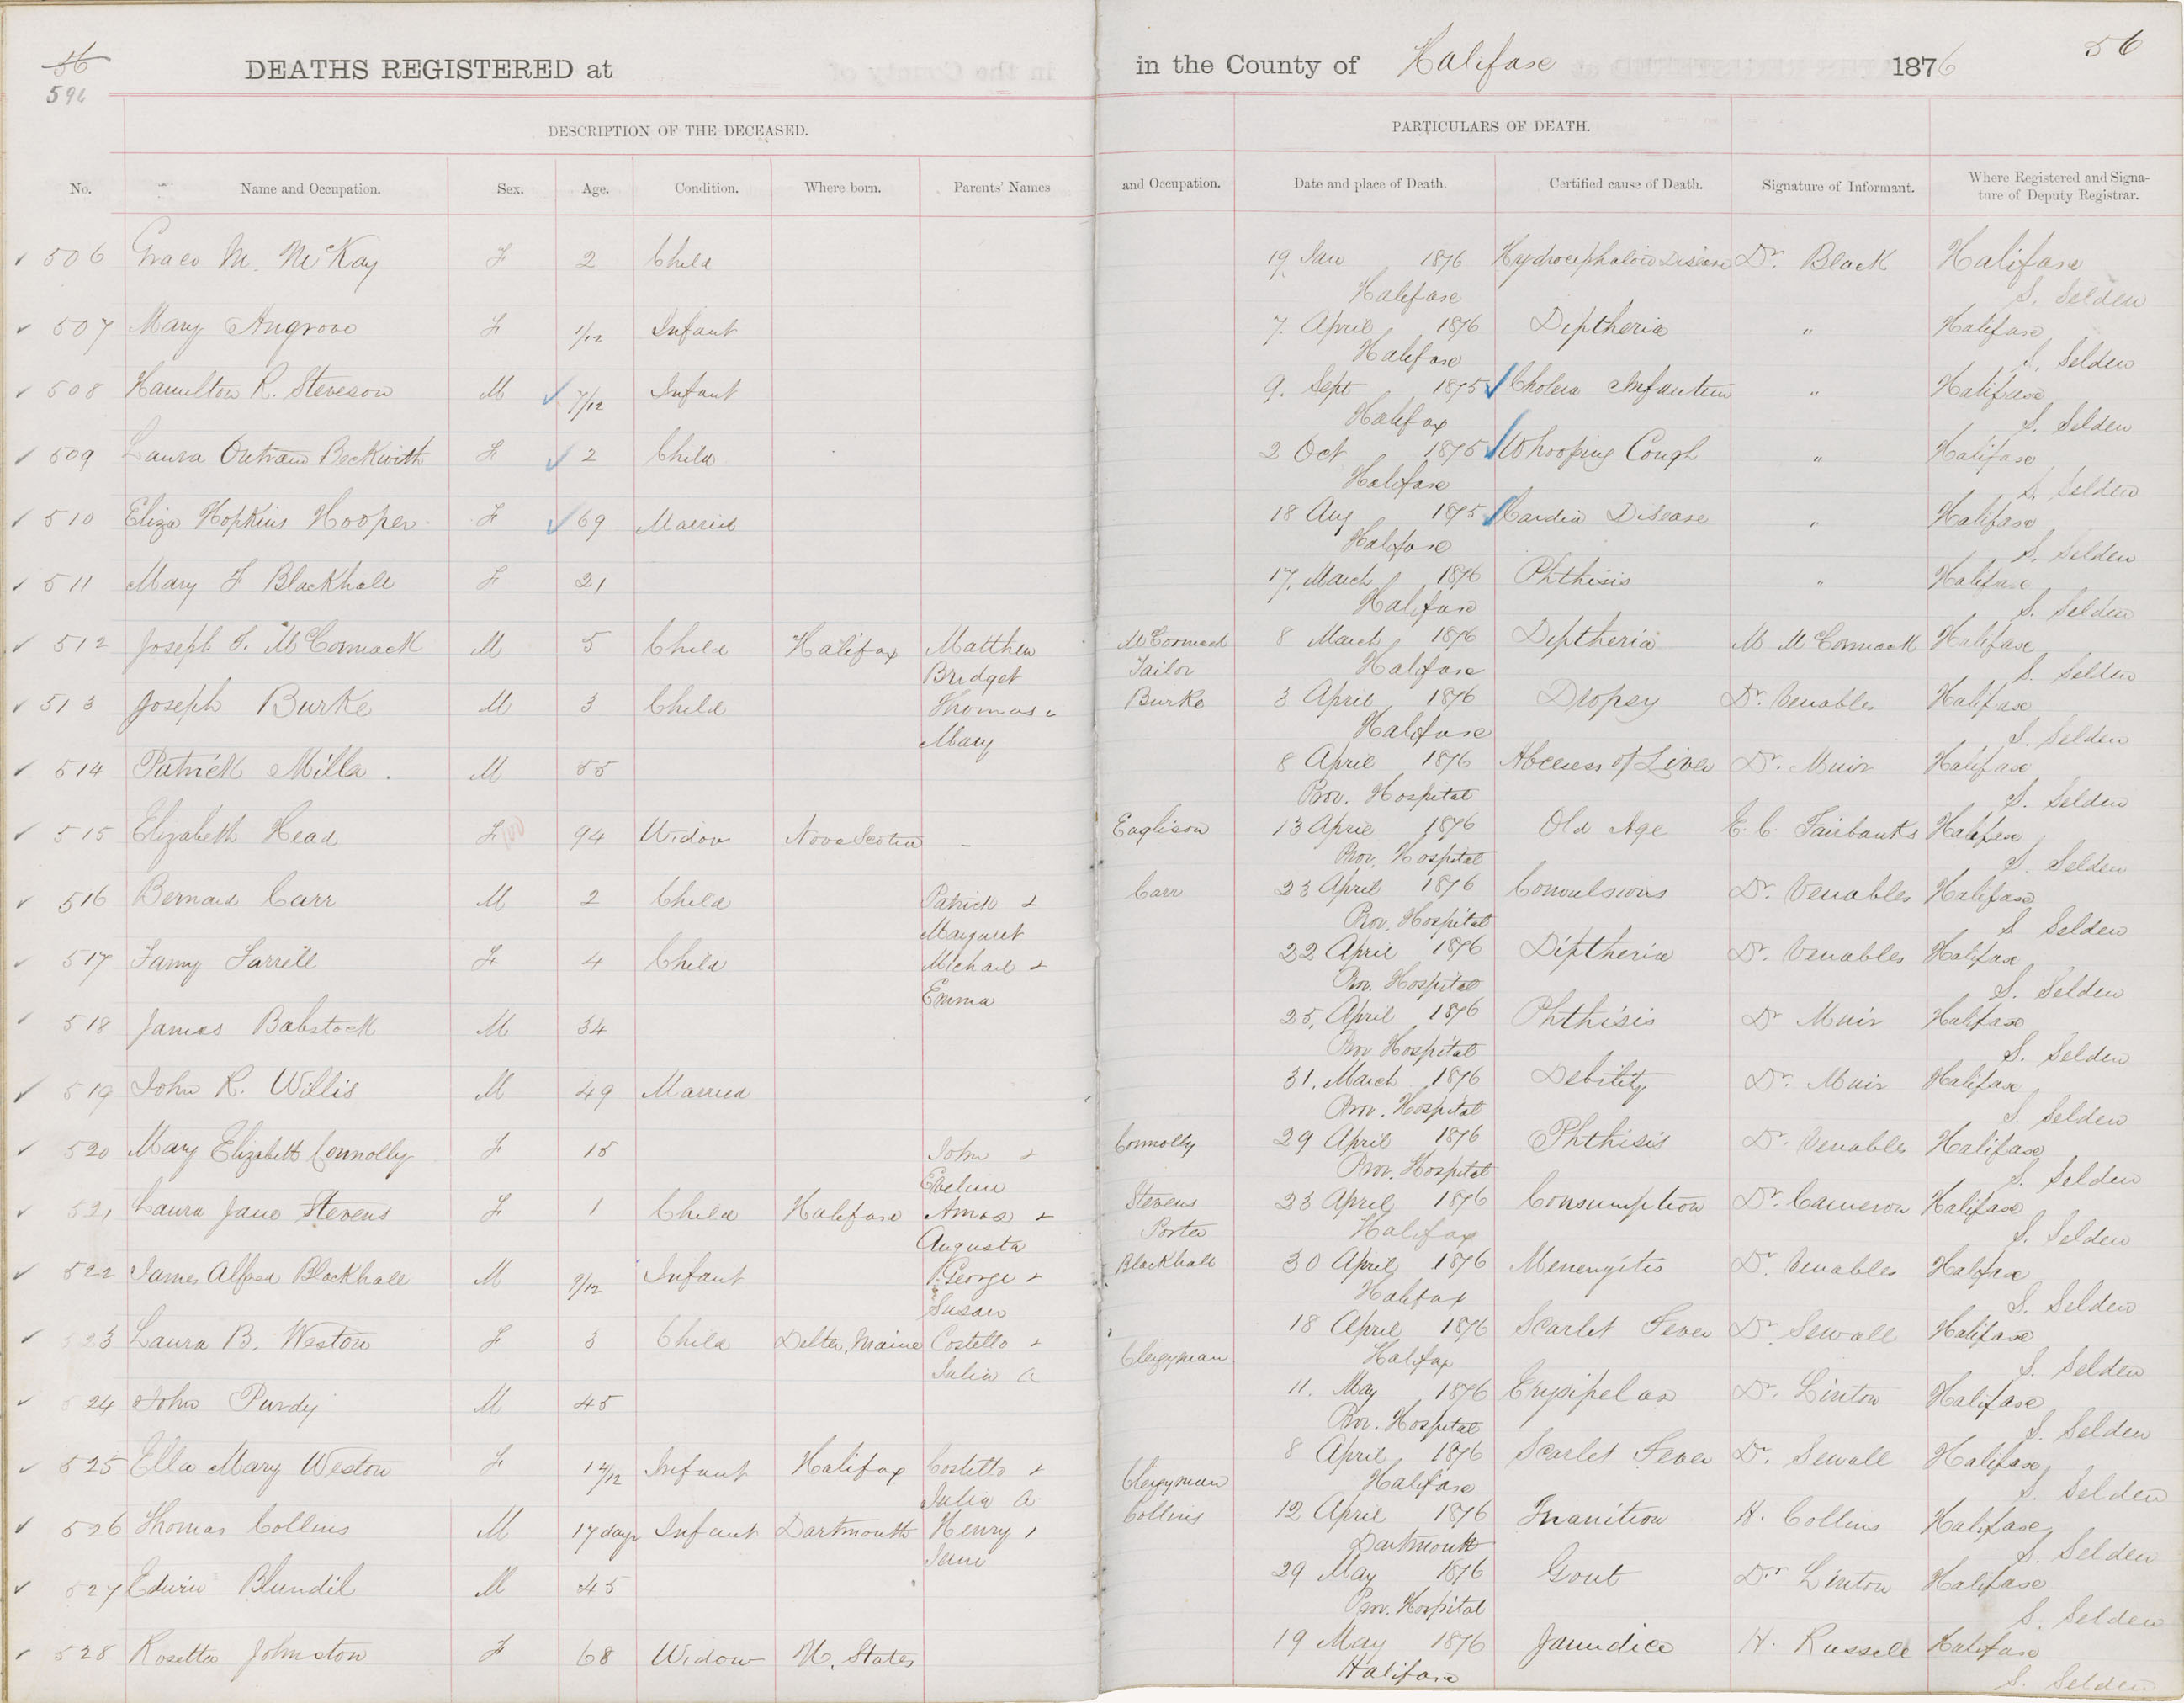 56
596
DEATHS REGISTERED at
in the County of Halifax 1876
56
DESCRIPTION OF THE DECEASED.
PARTICULARS OF DEATH.
No. Name and Occupation. Sex. Age. Condition. Where born. Parents' Names and Occupation. Date and place of Death. Certified cause of Death. Signature of Informant. Where Registered and Signa-
ture of Deputy Registrar.
506 Grace M. McKay F 2 Child 19 Jan 1876 Hydrocephaloid Disease Dr. Black Halifax
Halifax S. Selden
507 Mary Angrove F 1/12 Infant 7. April 1876 Diptheria " Halifax
Halifax S. Selden
508 Hamilton R. Steveson M 7/12 Infant 9. Sept 1875 Cholera Infantum " Halifax
Halifax S. Selden
509 Laura Outram Beckwith F 2 Child 2 Oct 1875 Whooping Cough " Halifax
Halifax S. Selden
510 Eliza Hopkins Hooper F 69 Married 18 Aug 1875 Cardia Disease " Halifax
Halifax S. Selden
511 Mary F Blackhall F 21 17. March 1876 Phthisis " Halifax
Halifax S. Selden
512 Joseph F. McCormack M 5 Child Halifax Matthew McCormack 8 March 1876 Diptheria M McCormack Halifax
Bridget Tailor Halifax S. Selden
513 Joseph Burke M 3 Child Thomas & Burke 3 April 1876 Dropsy Dr. Venables Halifax
Mary Halifax S. Selden
514 Patrick Milla. M 55 8 April 1876 Abcess of Liver Dr. Muir Halifax
Prov. Hospital S. Selden
515 Elizabeth Head F 94 Widow Nova Scotia - Eaglison 13 April 1876 Old Age E. C. Fairbanks Halifax
Prov. Hospital S. Selden
516 Bernard Carr M 2 Child Patrick & Carr 23 April 1876 Convulsions Dr. Venables Halifax
Margaret Prov. Hospital S Selden
517 Fanny Farrell F 4 Child Michael & 22 April 1876 Diptheria Dr. Venables Halifax
Emma Prov. Hospital S. Selden
518 James Babstock M 34 25, April 1876 Phthisis Dr Muir Halifax
Prov Hospital S. Selden
519 John R. Willis M 49 Married 31. March 1876 Debility Dr. Muir Halifax
Prov. Hospital S. Selden
520 Mary Elizabeth Connolly F 15 John & Connolly 29 April 1876 Phthisis Dr. Venables Halifax
Eveline Prov. Hospital S. Selden
521 Laura Jane Stevens F 1 Child Halifax Amos & Stevens 23 April 1876 Consumption Dr. Cameron Halifax
Augusta Porter Halifax S. Selden
522 James Alfred Blackhall M 9/12 Infant George & Blackhall 30 April 1876 Menengitis Dr. Venables Halifax
Susan Halifax S. Selden
523 Laura B. Weston F 3 Child Delta, Maine Costello & 18 April 1876 Scarlet Fever Dr Sewall Halifax
Julia A Clergyman Halifax S. Selden
524 John Purdy M 45 11. May 1876 Erysipelas Dr. Linton Halifax
Prov. Hospital S. Selden
525 Ella Mary Weston F 14/12 Infant Halifax Costello & 8 April 1876 Scarlet Fever Dr. Sewall Halifax
Julia A Clergyman Halifax S. Selden
526 Thomas Collins M 17 days Infant Dartmouth Henry & Collins 12 April 1876 Inanition H. Collins Halifax
Jane Dartmouth S. Selden
527 Edwin Blundil M 45 29 May 1876 Gout Dr Linton Halifax
Prov. Hospital S. Selden
528 Rosetta Johnston F 68 Widow U. States 19 May 1876 Jaundice H. Russell Halifax
Halifax S. Selden